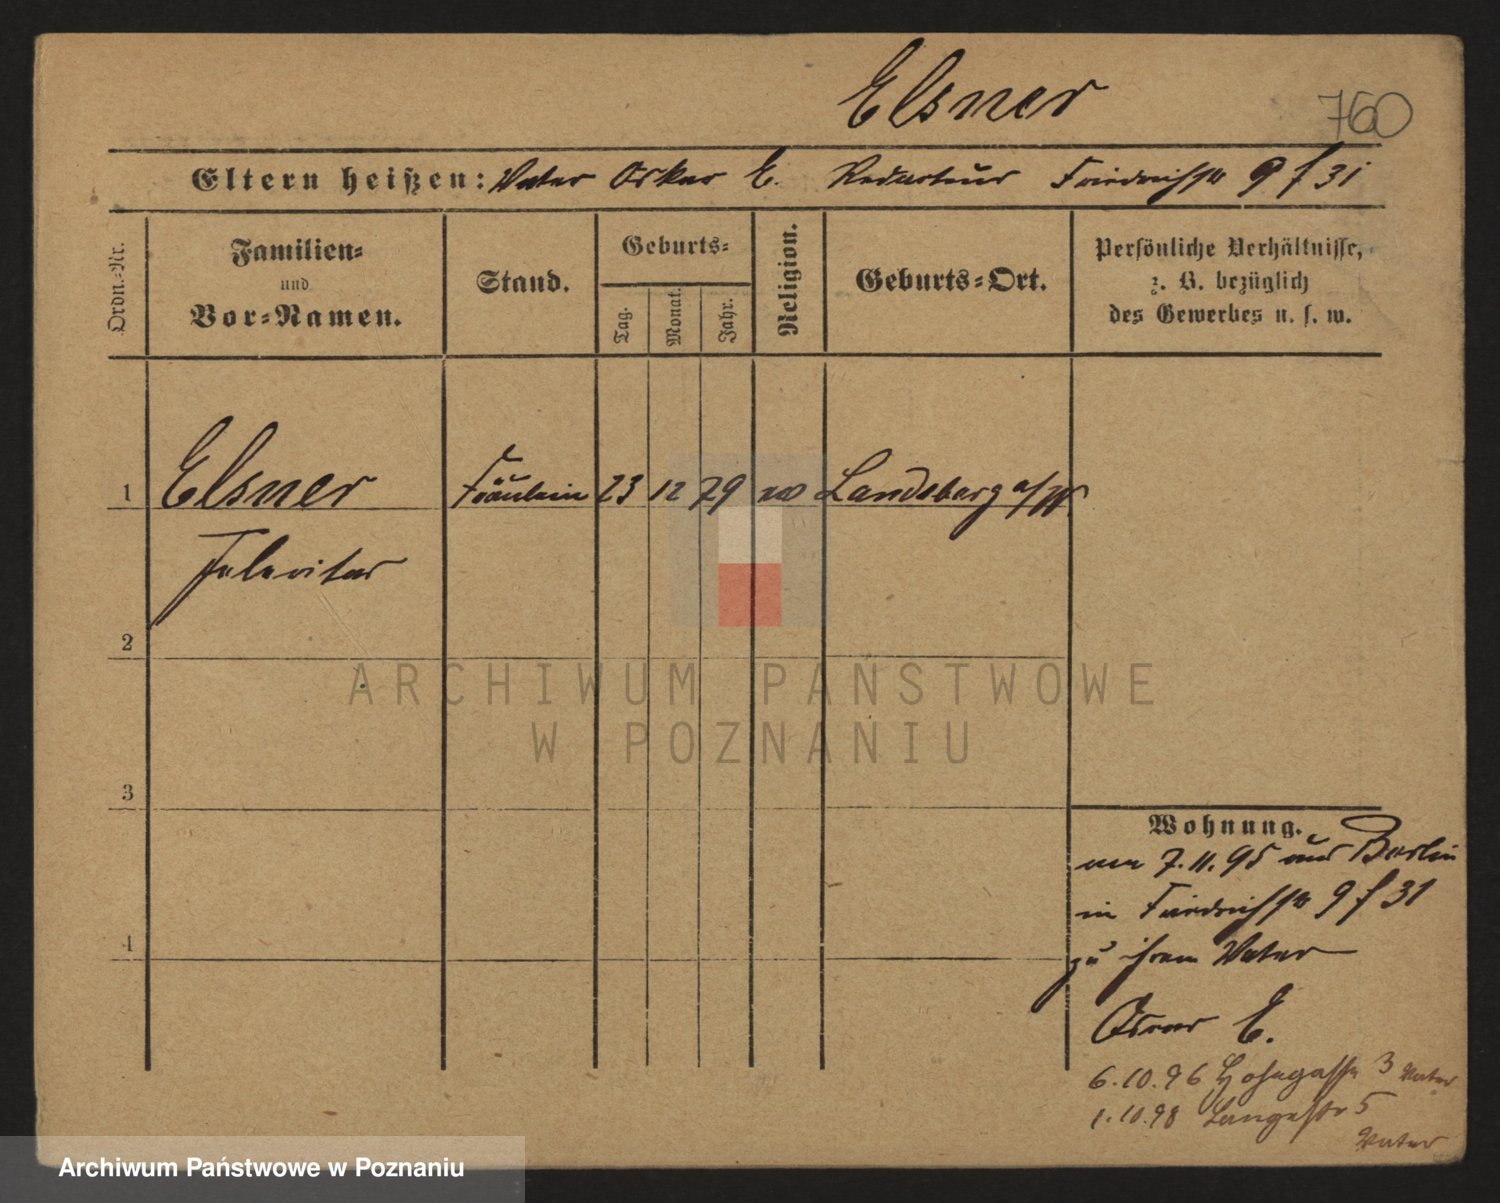 Elsner
760
Eltern heißen: Vater Oskar E. Redacteur Friedrichstr 9 f 31
Ordn.-Nr.
Familien-
und
Vor-Namen.
Stand.
Geburts-
Tag.
Monat.
Jahr.
Religion.
Geburts-Ort.
Persönliche Verhältnisse,
z. B. bezüglich
des Gewerbes u. s. w.
1 Elsner Fräulein 23 12 79 Landsberg a/W
2
3
4
Wohnung.
am 7.11.95 aus Berlin
in Friedrichstr 9 f 31
zu ihrem Vater
Oscar E.
6.10.96 Vater
1.10.98 Langestr 5
Vater
ARCHIWUM PAŃSTWOWE
W POZNANIU
Archiwum Państwowe w Poznaniu